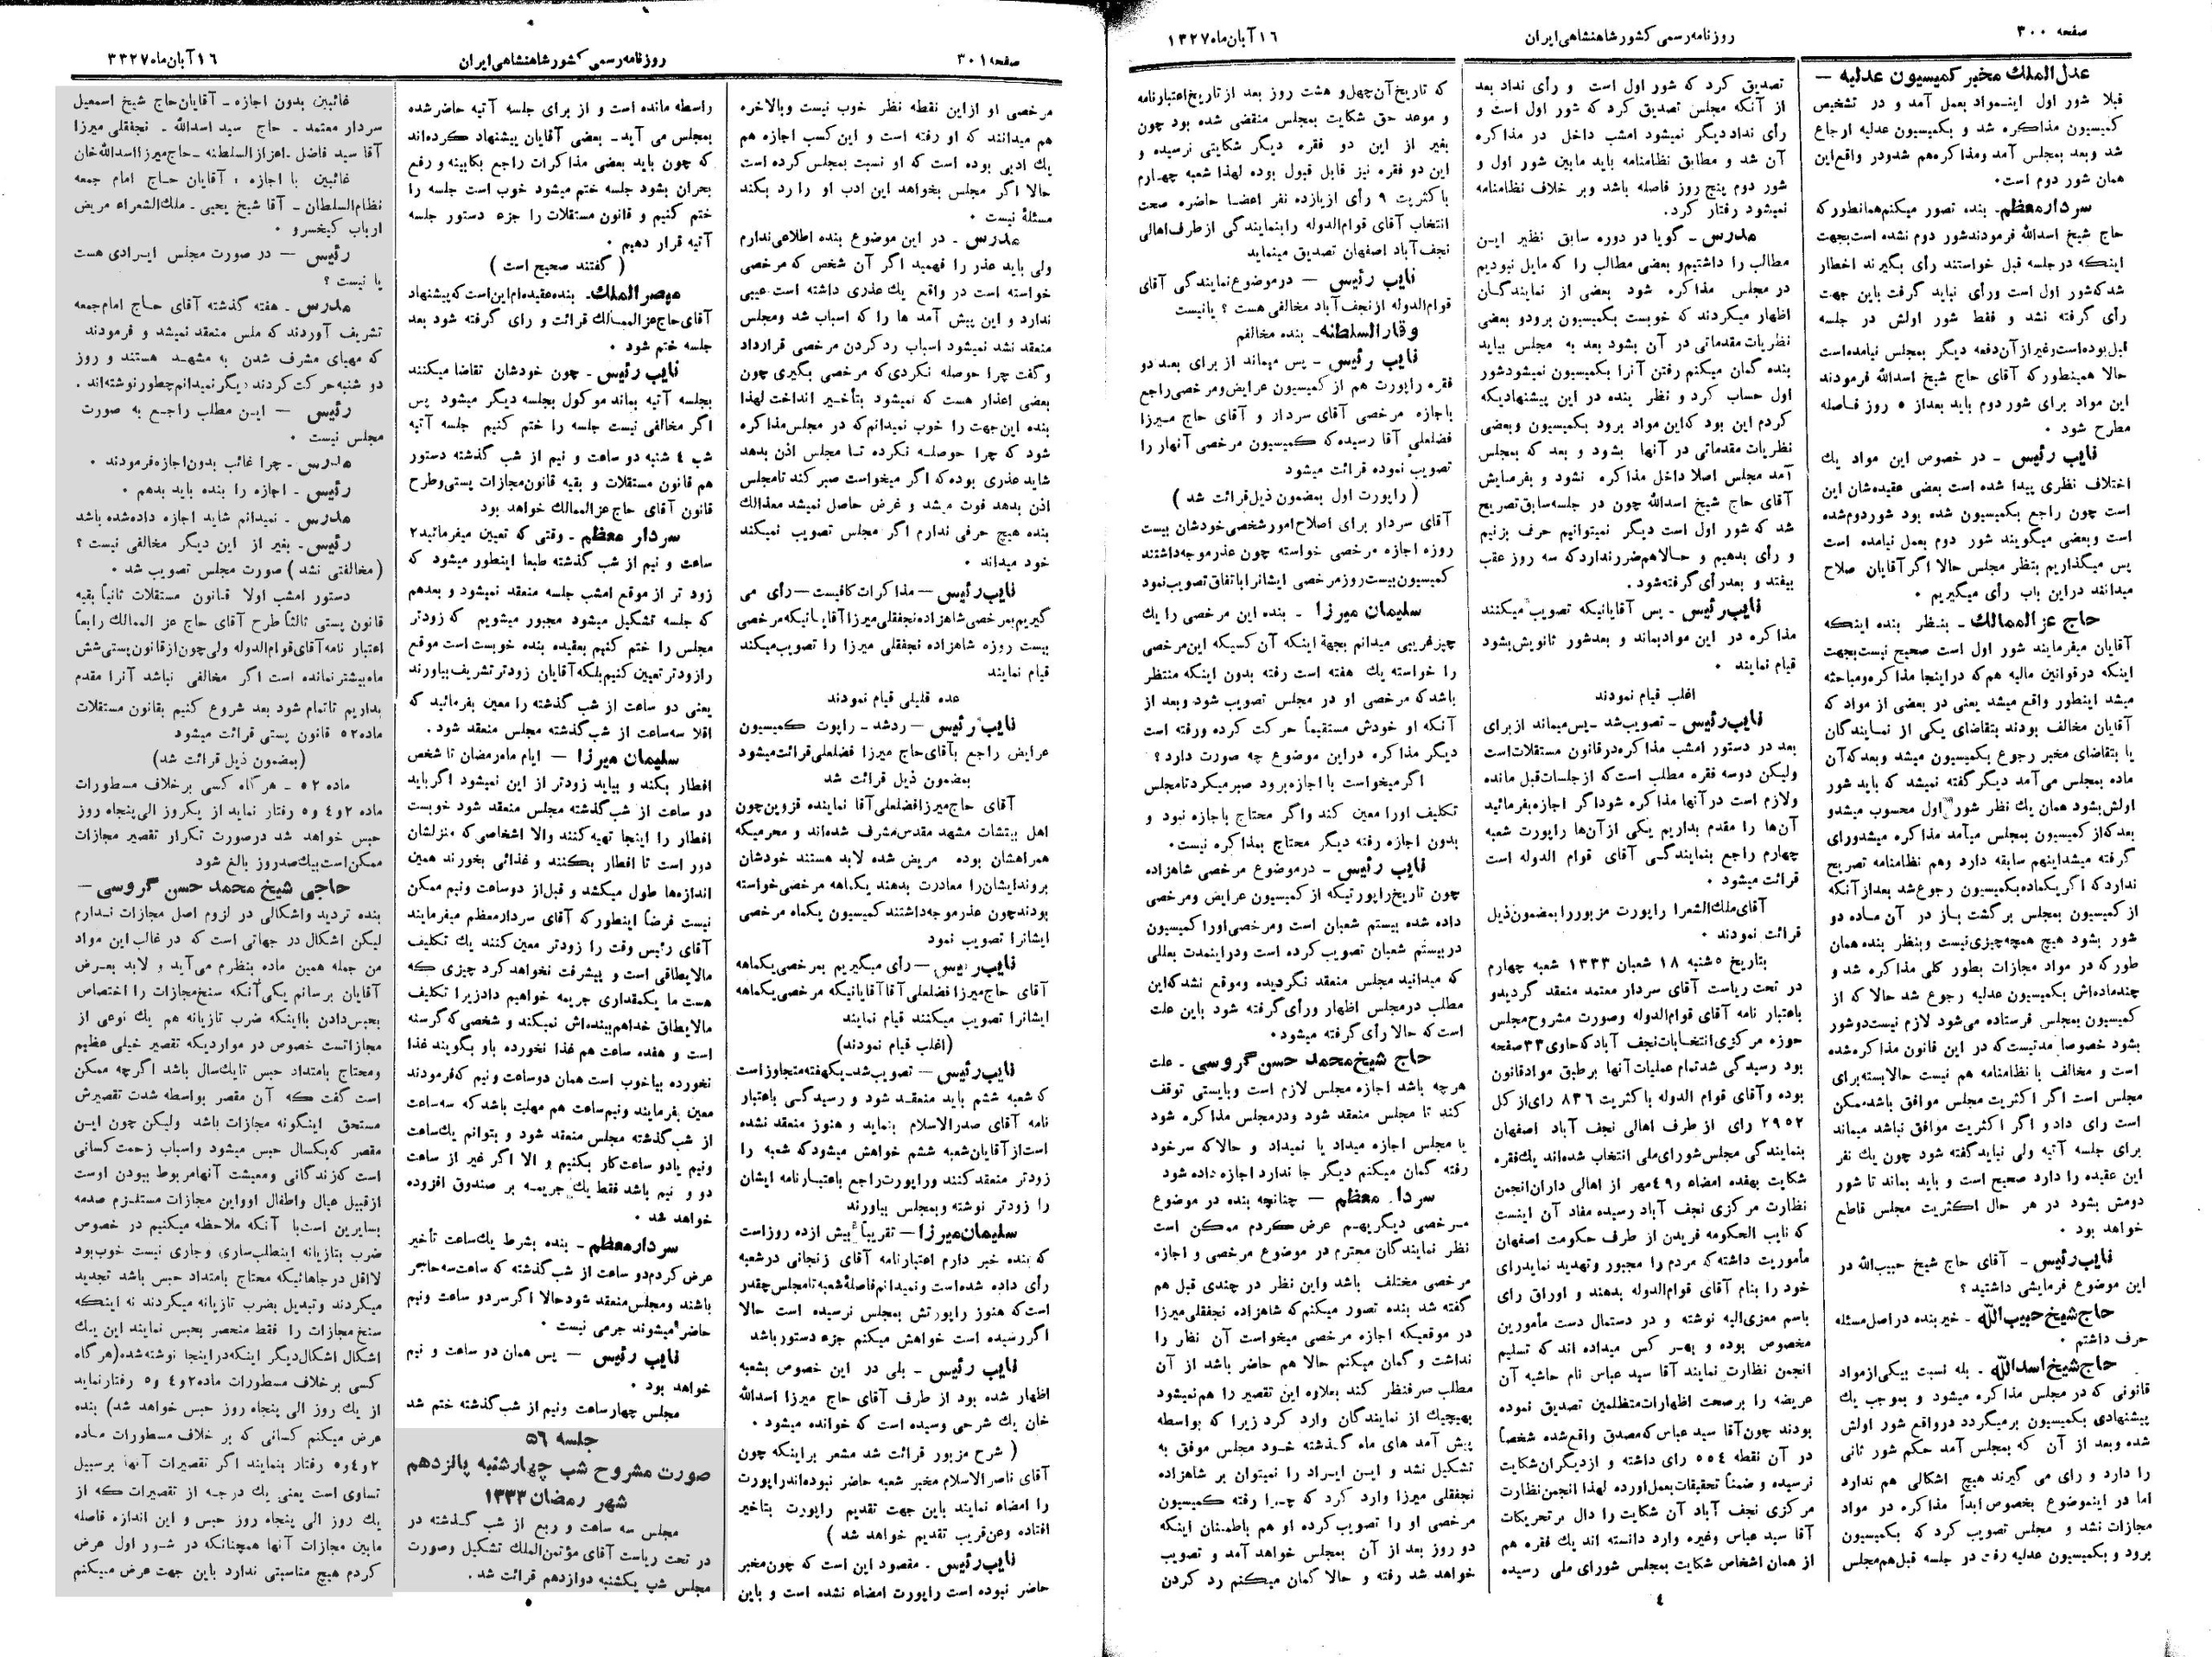 صفحه ۳۰۰
روزنامه رسمی کشور شاهنشاهی ایران
۱۶ آبان ماه ۱۳۲۷
عدل‌الملک مخبر کمیسیون عدلیه —
قبلا شور اول اینمواد بعمل آمد و در تشخیص
کمیسیون مذاکره شد و بکمیسیون عدلیه ارجاع
شد وبعد بمجلس آمد ومذاکره‌هم شدودر واقع‌این
همان شور دوم است.
سردار معظم- بنده تصور میکنم‌همانطورکه
حاج شیخ اسدالله فرمودندشور دوم نشده است‌بجهت
اینکه درجلسه قبل خواستند رأی بگیرند اخطار
شدکه‌شور اول است ورأی نباید گرفت باین جهت
رأی گرفته نشد و فقط شور اولش در جلسه
اول‌بوده‌است‌وغیرازآن‌دفعه دیگر بمجلس نیامده‌است
حالا همینطورکه آقای حاج شیخ اسدالله فرمودند
این مواد برای شور دوم باید بعداز ۵ روز فاصله
مطرح شود .
نایب رئیس - در خصوص این مواد یك
اختلاف نظری پیدا شده است بعضی عقیده‌شان این
است چون راجع بکمیسیون شده بود شوردوم‌شده
است وبعضی میگویند شور دوم بعمل نیامده است
پس میگذاریم بنظر مجلس حالا اگرآقایان صلاح
میدانند دراین باب رأی میگیریم .
حاج عز الممالك - بنظر بنده اینکه
آقایان میفرمایند شور اول است صحیح نیست‌بجهت
اینکه درقوانین مالیه هم‌که دراینجا مذاکره‌ومباحثه
میشد اینطور واقع میشد یعنی در بعضی از مواد که
آقایان مخالف بودند بتقاضای یکی از نمایندگان
یا بتقاضای مخبر رجوع بکمیسیون میشد وبعدکه‌آن
ماده بمجلس می‌آمد دیگرگفته نمیشد که باید شور
اولش‌بشود همان یك نظر شور اول محسوب میشدو
بعدکه‌از کمیسیون بمجلس میآمد مذاکره میشدورای
گرفته میشداینهم سابقه دارد وهم نظامنامه تصریح
نداردکه اگریکماده‌بکمیسیون رجوع‌شد بعدازآنکه
از کمیسیون بمجلس برگشت باز در آن ماده دو
شور بشود هیچ همچه‌چیزی‌نیست وبنظر بنده همان
طورکه در مواد مجازات بطور کلی مذاکره شد و
چندماده‌اش بکمیسیون عدلیه رجوع شد حالا که از
کمیسیون بمجلس فرستاده می‌شود لازم نیست‌دوشور
بشود خصوصا مدتیست‌که در این قانون مذاکره‌شده
است و مخالف با نظامنامه هم نیست حالابسته‌برای
مجلس است اگر اکثریت مجلس موافق باشدممکن
است رای داد و اگر اکثریت موافق نباشد میماند
برای جلسه آتیه ولی نبایدگفته شود چون یك نفر
این عقیده را دارد صحیح است و باید بماند تا شور
دومش بشود در هر حال اکثریت مجلس قاطع
خواهد بود .
نایب‌رئیس - آقای حاج شیخ حبیب‌الله در
این موضوع فرمایشی داشتید؟
حاج‌شیخ‌حبیب‌الله - خیربنده دراصل‌مسئله
حرف داشتم .
حاج‌شیخ‌اسدالله - بله نسبت بیکی‌ازمواد
قانونی که در مجلس مذاکره میشود و بموجب یك
پیشنهادی بکمیسیون برمیگردد درواقع شور اولش
شده وبعد از آن که بمجلس آمد حکم شور ثانی
را دارد و رای می گیرند هیچ اشکالی هم ندارد
اما در اینموضوع بخصوص ابداً مذاکره در مواد
مجازات نشد و مجلس تصویب کرد که بکمیسیون
برود و بکمیسیون عدلیه رفت در جلسه قبل‌هم‌مجلس
تصدیق کرد که شور اول است و رأی نداد بعد
از آنکه مجلس تصدیق کرد که شور اول است و
رأی نداددیگر نمیشود امشب داخل در مذاکره
آن شد و مطابق نظامنامه باید مابین شور اول و
شور دوم پنج روز فاصله باشد وبر خلاف نظامنامه
نمیشود رفتار کرد.
مدرس - گویا در دوره سابق نظیر این
مطالب را داشتیم‌و بعضی مطالب را که مایل نبودیم
در مجلس مذاکره شود بعضی از نمایندگان
اظهار میکردند که خوبست بکمیسیون برودو بعضی
نظریات مقدماتی در آن بشود بعد به مجلس بیاید
بنده گمان میکنم رفتن آنرا بکمیسیون نمیشودشور
اول حساب کرد و نظر بنده در این پیشنهادیکه
کردم این بود که‌این مواد برود بکمیسیون وبعضی
نظریات مقدماتی در آنها بشود و بعد که بمجلس
آمد مجلس اصلا داخل مذاکره نشود و بفرمایش
آقای حاج شیخ اسدالله چون در جلسه‌سابق‌تصریح
شد که شور اول است دیگر نمیتوانیم حرف بزنیم
و رأی بدهیم و حالاهم‌ضررنداردکه سه روز عقب
بیفتد و بعدرأی گرفته‌شود.
نایب‌رئیس - پس آقایانیکه تصویب میکنند
مذاکره در این موادبماند و بعدشور ثانویش‌بشود
قیام نمایند .
اغلب قیام نمودند
نایب‌رئیس - تصویب‌شد -پس‌میماند ازبرای
بعد در دستور امشب مذاکره‌درقانون مستقلات‌است
ولیکن دوسه فقره مطلب است‌که ازجلسات‌قبل مانده
ولازم است درآنها مذاکره شوداگر اجازه‌بفرمائید
آن‌ها را مقدم بداریم یکی ازآن‌ها راپورت شعبه
چهارم راجع بنمایندگی آقای قوام الدوله است
قرائت میشود .
آقای‌ملك‌الشعرا راپورت مزبوررا بمضمون‌ذیل
قرائت نمودند .
بتاریخ ۵شنبه ۱۸ شعبان ۱۳۳۳ شعبه چهارم
در تحت ریاست آقای سردار معتمد منعقد گردیدو
باعتبار نامه آقای قوام‌الدوله وصورت مشروح‌مجلس
حوزه مرکزی‌انتخابات‌نجف آبادکه‌حاوی۳۳صفحه
بود رسیدگی شدتمام عملیات‌آنها برطبق موادقانون
بوده وآقای قوام الدوله باکثریت ۸۳۶ رای‌ازکل
۲۹۵۲ رای از طرف اهالی نجف آباد اصفهان
بنمایندگی مجلس‌شورای‌ملی انتخاب شده‌اند یك‌فقره
شکایت بهفده امضاء و۴۹مهر از اهالی داران‌انجمن
نظارت مرکزی نجف آباد رسیده مفاد آن اینست
که نایب الحکومه فریدن از طرف حکومت اصفهان
مأموریت داشته‌که مردم را مجبور وتهدید نمایدرای
خود را بنام آقای قوام‌الدوله بدهند و اوراق رای
باسم معزی‌الیه نوشته و در دستمال دست مأمورین
مخصوص بوده و بهر کس میداده اند که تسلیم
انجمن نظارت نمایند آقا سید عباس نام حاشیه آن
عریضه را برصحت اظهارات‌متظلمین تصدیق نموده
بودند چون‌آقا سید عباس‌که‌مصدق واقع‌شده شخصاً
در آن نقطه ۵۵۴ رای داشته و ازدیگران‌شکایت
نرسیده و ضمناً تحقیقات بعمل‌آورده لهذا انجمن‌نظارت
مرکزی نجف آباد آن شکایت را دال برتحریکات
آقا سید عباس وغیره وارد دانسته اند یك فقره هم
از همان اشخاص شکایت بمجلس شورای ملی رسیده
که تاریخ‌آن‌چهل‌و هشت روز بعد از تاریخ‌اعتبارنامه
و موعد حق شکایت بمجلس منقضی شده بود چون
بغیر از این دو فقره دیگر شکایتی نرسیده و
این دو فقره نیز قابل قبول بوده لهذا شعبه چهارم
باکثریت ۹ رأی ازیازده نفر اعضا حاضره صحت
انتخاب آقای قوام‌الدوله رابنمایندگی ازطرف‌اهالی
نجف‌آباد اصفهان تصدیق مینماید
نایب رئیس — درموضوع‌نمایندگی آقای
قوام‌الدوله ازنجف‌آباد مخالفی هست ؟ یانیست
وقارالسلطنه- بنده مخالفم
نایب رئیس - پس میماند از برای بعد دو
فقره راپورت هم از کمیسیون عرایض‌ومرخصی‌راجع
باجازه مرخصی آقای سردار و آقای حاج میرزا
فضلعلی آقا رسیده‌که کمیسیون مرخصی آنهار را
تصویب نموده قرائت میشود
( راپورت اول بمضمون ذیل‌قرائت شد )
آقای سردار برای اصلاح‌امورشخصی‌خودشان بیست
روزه اجازه مرخصی خواسته چون عذرموجه‌داشتند
کمیسیون‌بیست‌روزمرخصی ایشانراباتفاق‌تصویب‌نمود
سلیمان میرزا - بنده این مرخصی را یك
چیزغریبی میدانم بجهة اینکه آن کسیکه این‌مرخصی
را خواسته یك هفته است رفته بدون اینکه منتظر
باشدکه مرخصی او در مجلس تصویب شود وبعد از
آنکه او خودش مستقیماً حرکت کرده ورفته است
دیگر مذاکره دراین موضوع چه صورت دارد؟
اگرمیخواست بااجازه‌برود صبرمیکردتامجلس
تکلیف اورا معین کند واگر محتاج باجازه نبود و
بدون اجازه رفته دیگر محتاج بمذاکره نیست.
نایب رئیس - درموضوع مرخصی شاهزاده
چون تاریخ‌راپورتیکه ازکمیسیون عرایض ومرخصی
داده شده بیستم شعبان است ومرخصی‌اوراکمیسیون
دربیستم شعبان تصویب‌کرده است ودراینمدت بعللی
که میدانید مجلس منعقد نگردیده وموقع نشدکه‌این
مطلب درمجلس اظهار ورأی‌گرفته شود باین علت
است‌که حالارأی‌گرفته میشود.
حاج شیخ‌محمد حسن گروسی - علت
هرچه باشد اجازه مجلس لازم است وبایستی توقف
کند تا مجلس منعقد شود ودرمجلس مذاکره شود
یا مجلس اجازه میداد یا نمیداد و حالاکه سرخود
رفته گمان میکنم دیگر جا ندارد اجازه داده شود
سردار معظم — چنانچه بنده در موضوع
مرخصی دیگربهم عرض کردم ممکن است
نظر نمایندگان محترم در موضوع مرخصی و اجازه
مرخصی مختلف باشد واین نظر در چندی قبل هم
گفته شد بنده تصور میکنم‌که شاهزاده نجفقلی‌میرزا
در موقعیکه اجازه مرخصی میخواست آن نظار را
نداشت و گمان میکنم حالا هم حاضر باشد از آن
مطلب صرفنظر کند بعلاوه این تقصیر را هم‌نمیشود
بهیچیك از نمایندگان وارد کرد زیرا که بواسطه
پیش آمد های ماه گذشته خود مجلس موفق به
تشکیل نشد و این ایراد را نمیتوان بر شاهزاده
نجفقلی میرزا وارد کرد که چرا رفته کمیسیون
مرخصی او را تصویب‌کرده او هم باطمنان اینکه
دو روز بعد از آن بمجلس خواهد آمد و تصویب
خواهد شد رفته و حالا گمان میکنم رد کردن
۴
صفحه ۳۰۱
روزنامه رسمی کشور شاهنشاهی ایران
۱۶ آبان ماه ۳۳۲۷
مرخصی او ازاین نقطه نظر خوب نیست وبالاخره
هم میدانند که او رفته است و این کسب اجازه هم
یك ادبی بوده است که او نسبت بمجلس کرده است
حالا اگر مجلس بخواهد این ادب او را رد بکند
مسئلهٔ نیست .
مدرس - در این موضوع بنده اطلاعی‌ندارم
ولی باید عذر را فهمید اگر آن شخص که مرخصی
خواسته است در واقع یك عذری داشته است عیبی
ندارد و این پیش آمد ها را که اسباب شد ومجلس
منعقد نشد نمیشود اسباب ردکردن مرخصی قرارداد
وگفت چرا حوصله نکردی‌که مرخصی بگیری چون
بعضی اعذار هست که نمیشود بتأخیر انداخت لهذا
بنده این‌جهت را خوب نمیدانم‌که در مجلس‌مذاکره
شود که چرا حوصله نکرده تا مجلس اذن بدهد
شاید عذری بوده‌که اگر میخواست صبر کند تامجلس
اذن بدهد فوت میشد و غرض حاصل نمیشد معذالك
بنده هیچ حرفی ندارم اگر مجلس تصویب نمیکند
خود میداند .
نایب‌رئیس — مذاکرات کافیست —رأی می
گیریم‌بمرخصی‌شاهزاده‌نجفقلی‌میرزا آقایانیکه‌مرخصی
بیست روزه شاهزاده نجفقلی میرزا را تصویب‌میکند
قیام نمایند
عده قلیلی قیام نمودند
نایب رئیس —ردشد- راپوت کمیسیون
عرایض راجع بآقای‌حاج میرزا فضلعلی‌قرائت‌میشود
بمضمون ذیل قرائت شد
آقای حاج‌میرزافضلعلی‌آقا نماینده قزوین‌چون
اهل بیتشات مشهد مقدس‌مشرف شده‌اند و محرمیکه
همراهشان بوده مریض شده لابد هستند خودشان
بروندایشان‌را معادرت بدهند یکماهه مرخصی‌خواسته
بودندچون عذرموجه‌داشتند کمیسیون یکماه مرخصی
ایشانرا تصویب نمود
نایب‌رئیس —رأی میگیریم بمرخصی‌یکماهه
آقای حاج‌میرزا فضلعلی‌آقاآقایانیکه مرخصی‌یکماهه
ایشانرا تصویب میکنند قیام نمایند
(اغلب قیام نمودند)
نایب‌رئیس — تصویب‌شد-یکهفته‌متجاوزاست
که شعبه ششم باید منعقد شود و رسیدگی باعتبار
نامه آقای صدرالاسلام بنماید و هنوز منعقد نشده
است‌ازآقایان‌شعبه ششم خواهش میشودکه شعبه را
زودتر منعقدکنند وراپورت‌راجع باعتبارنامه ایشان
را زودتر نوشته وبمجلس بیاورند
سلیمان‌میرزا — تقریباً بیش ازده روزاست
که بنده خبر دارم اعتبارنامه آقای زنجانی درشعبه
رأی داده شده‌است ونمیدانم‌فاصلهٔ‌شعبه تامجلس‌چقدر
است‌که هنوز راپورتش بمجلس نرسیده است حالا
اگررسیده است خواهش میکنم جزء دستورباشد
نایب رئیس - بلی در این خصوص بشعبه
اظهار شده بود از طرف آقای حاج میرزا اسدالله
خان یك شرحی وسیده است که خوانده میشود .
( شرح مزبور قرائت شد مشعر براینکه چون
آقای ناصرالاسلام مخبر شعبه حاضر نبوده‌اندراپورت
را امضاء نمایند باین جهت تقدیم راپورت بتاخیر
افتاده وعن‌قریب تقدیم خواهد شد )
نایب‌رئیس - مقصود این است که چون‌مخبر
حاضر نبوده است راپورت امضاء نشده است و باین
راسطه مانده است و از برای جلسه آتیه حاضر شده
بمجلس می آید- بعضی آقایان پیشنهاد کرده‌اند
که چون باید بعضی مذاکرات راجع بکابینه و رفع
بحران بشود جلسه ختم میشود خوب است جلسه را
ختم کنیم و قانون مستقلات را جزء دستور جلسه
آتیه قرار دهیم .
( گفتند صحیح است )
مبصر الملك- بنده‌عقیده‌ام‌این‌است‌که‌پیشنهاد
آقای‌حاج‌عزالممالك قرائت و رای گرفته شود بعد
جلسه ختم شود .
نایب رئیس - چون خودشان تقاضا میکنند
بجلسه آتیه بماند موکول بجلسه دیگر میشود پس
اگر مخالفی نیست جلسه را ختم کنیم جلسه آتیه
شب ۴ شنبه دو ساعت و نیم از شب گذشته دستور
هم قانون مستقلات و بقیه قانون‌مجازات پستی‌وطرح
قانون آقای حاج عزالممالك خواهد بود
سردار معظم - وقتی که تعیین میفرمائید۲
ساعت و نیم از شب گذشته طبعا اینطور میشود که
زود تر از موقع امشب جلسه منعقد نمیشود و بعدهم
که جلسه تشکیل میشود مجبور میشویم که زودتر
مجلس را ختم کنیم بعقیده بنده خوبست است موقع
رازودتر تعیین کنیم‌بلکه‌آقایان زودتر تشریف‌بیاورند
یعنی دو ساعت از شب گذشته را معین بفرمائید که
اقلا سه‌ساعت از شب‌گذشته مجلس منعقد شود .
سلیمان میرزا — ایام ماه‌رمضان تا شخص
افطار بکند و بیاید زودتر از این نمیشود اگرباید
دو ساعت از شب‌گذشته مجلس منعقد شود خوبست
افطار را اینجا تهیه‌کنند والا اشخاصی‌که منزلشان
دور است تا افطار بکنند و غذائی بخورند همین
اندازه‌ها طول میکشد و قبل‌از دوساعت ونیم ممکن
نیست فرضاً اینطورکه آقای سردارمعظم میفرمایند
آقای رئیس وقت را زودتر معین‌کنند یك تکلیف
مالایطاقی است و پیشرفت نخواهد کرد چیزی که
هست ما یکمقداری جریمه خواهیم دادزیرا تکلیف
مالایطاق خداهم‌ببنده‌اش نمیکند و شخصی‌که گرسنه
است و هفده ساعت هم غذا نخورده باو بگویند غذا
نخورده بیاخوب است همان دوساعت ونیم که‌فرمودند
معین بفرمایند ونیم‌ساعت هم مهلت باشدکه سه‌ساعت
از شب‌گذشته مجلس منعقد شود و بتوانم یك‌ساعت
ونیم یادو ساعت‌کار بکنیم و الا اگر غیر از ساعت
دو و نیم باشد فقط یك جریمه بر صندوق افزوده
خواهد شد .
سردارمعظم - بنده بشرط یك‌ساعت تأخیر
عرض کردم‌دو ساعت از شب‌گذشته که ساعت‌سه‌حاضر
باشند ومجلس‌منعقد شودحالا اگرسردو ساعت ونیم
حاضر میشوند جرمی نیست .
نایب رئیس — پس همان دو ساعت و نیم
خواهد بود .
مجلس چهارساعت ونیم از شب‌گذشته ختم شد
جلسه ۵۶
صورت مشروح شب چهارشنبه پانزدهم
شهر رمضان ۱۳۳۳
مجلس سه ساعت و ربع از شب گذشته در
در تحت ریاست آقای مؤتمن‌الملك تشکیل وصورت
مجلس شب یکشنبه دوازدهم قرائت شد .
غائبین بدون اجازه - آقایان‌حاج شیخ اسمعیل
سردار معتمد - حاج سید اسدالله - نجفقلی میرزا
آقا سید فاضل -اعزازالسلطنه -حاج‌میرزااسدالله‌خان
غائبین با اجازه : آقایان حاج امام جمعه
نظام‌السلطان - آقا شیخ یحیی - ملك‌الشعراء مریض
ارباب کیخسرو .
رئیس — در صورت مجلس ایرادی هست
یا نیست ؟
مدرس - هفته گذشته آقای حاج امام‌جمعه
تشریف آوردند که ملس منعقد نمیشد و فرمودند
که مهیای مشرف شدن به مشهد هستند و روز
دو شنبه‌حرکت کردند دیگرنمیدانم‌چطورنوشته‌اند .
رئیس — این مطلب راجع به صورت
مجلس نیست .
مدرس - چرا غائب بدون‌اجازه‌فرمودند .
رئیس - اجازه را بنده باید بدهم .
مدرس - نمیدانم شاید اجازه داده‌شده باشد
رئیس - بغیر از این دیگر مخالفی نیست ؟
(مخالفتی نشد) صورت مجلس تصویب شد .
دستور امشب اولا قانون مستقلات ثانیاً بقیه
قانون پستی ثالثاً طرح آقای حاج عز الممالك رابعاً
اعتبار نامه‌آقای‌قوام‌الدوله ولی‌چون‌ازقانون‌پستی‌شش
ماه‌بیشترنمانده است اگر مخالفی نباشد آنرا مقدم
بداریم تاتمام شود بعد شروع کنیم بقانون مستقلات
ماده۵۲ قانون پستی قرائت میشود
(بمضمون ذیل قرائت شد)
ماده ۵۲ - هرگاه کسی برخلاف مسطورات
ماده ۲و۴ و۵ رفتار نماید از یکروز الی‌پنجاه روز
حبس خواهد شد درصورت تکرار تقصیر مجازات
ممکن‌است‌بیك‌صدروز بالغ شود
حاجی شیخ محمد حسن گروسی —
بنده تردید واشکالی در لزوم اصل مجازات ندارم
لیکن اشکال در جهاتی است که در غالب‌این مواد
من جمله همین ماده بنظرم می‌آید و لابد بعرض
آقایان برسانم یکی‌آنکه سنخ‌مجازات را اختصاص
بحبس‌دادن بااینکه ضرب تازیانه هم یك نوعی از
مجازاتست خصوص در مواردیکه تقصیر خیلی عظیم
ومحتاج بامتداد حبس تایك‌سال باشد اگرچه ممکن
است گفت که آن مقصر بواسطه شدت تقصیرش
مستحق اینگونه مجازات باشد ولیکن چون این
مقصر که‌یکسال حبس میشود واسباب زحمت کسانی
است که‌زندگانی ومعیشت آنهامربوط ببودن اوست
ازقبیل عیال واطفال اوواین مجازات مستلزم صدمه
بسایرین است‌با آنکه ملاحظه میکنیم در خصوص
ضرب بتازیانه اینطلب‌ساری وجاری نیست خوب‌بود
لااقل درجاهائیکه محتاج بامتداد حبس باشد تجدید
میکردند وتبدیل بضرب تازیانه میکردند نه اینکه
سنخ‌مجازات را فقط منحصر بحبس نمایند این یك
اشکال اشکال‌دیگر اینکه‌دراینجا نوشته‌شده(هرگاه
کسی برخلاف مسطورات ماده۲و۴ و۵ رفتارنماید
از یك روز الی پنجاه روز حبس خواهد شد) بنده
عرض میکنم کسانی که بر خلاف مسطورات ماده
۲و۴و۵ رفتار بنمایند اگر تقصیرات آنها برسبیل
تساوی است یعنی یك درجه از تقصیرات که از
یك روز الی پنجاه روز حبس و این اندازه فاصله
مابین مجازات آنها همچنانکه در شور اول عرض
کردم هیچ مناسبتی ندارد باین جهت عرض میکنم